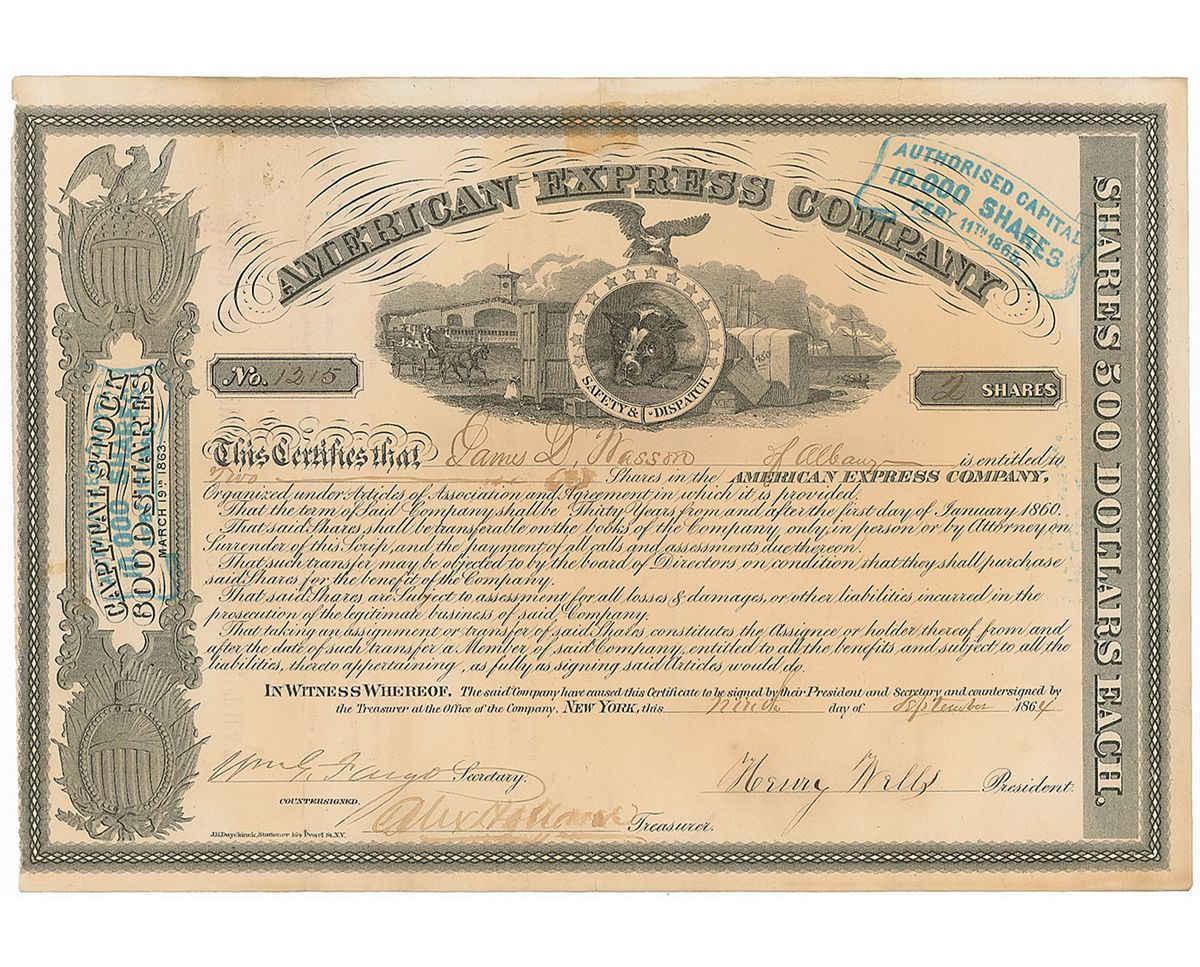 AMERICAN EXPRESS COMPANY
AUTHORISED CAPITAL
10.000 SHARES
FEBY 11TH 1865.
SAFETY & DISPATCH
No. 1215
2 SHARES
This Certifies that James D. Wasson of Albany is entitled to
Two Shares in the AMERICAN EXPRESS COMPANY,
Organized under Articles of Association and Agreement in which it is provided.
That the term of Said Company shall be Thirty Years from and after the first day of January 1860.
That said Shares shall be transferable on the books of the Company only, in person or by Attorney on
Surrender of this Scrip, and the payment of all calls and assessments due thereon.
That such transfer may be objected to by the board of Directors on condition that they shall purchase
said Shares for the benefit of the Company.
That said Shares are Subject to assessment for all losses & damages, or other liabilities incurred in the
prosecution of the legitimate business of said Company.
That taking an assignment or transfer of said Shares constitutes the Assignee or holder thereof from and
after the date of such transfer a Member of said Company, entitled to all the benefits and subject to all the
liabilities, thereto appertaining, as fully as signing said Articles would do.
IN WITNESS WHEREOF, The said Company have caused this Certificate to be signed by their President and Secretary and countersigned by
the Treasurer at the Office of the Company. NEW YORK, this ninth day of September 1864
Wm G. Fargo Secretary.
Henry Wells President.
COUNTERSIGNED.
Alex Holland Treasurer.
J.H. Duyckinck, Stationer 164 Pearl St. N.Y.
CAPITAL STOCK
6000 SHARES.
MARCH 19TH 1863
10.000 SHARES
SHARES 500 DOLLARS EACH.